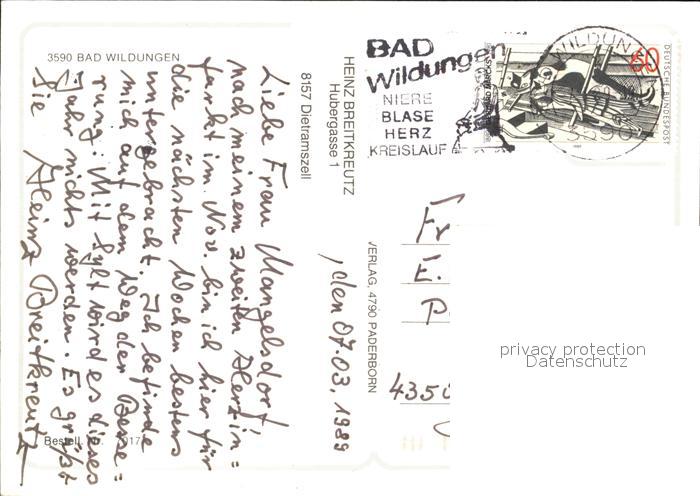 3590 BAD WILDUNGEN
HEINZ BREITKREUTZ
Hubergasse 1
8157 Dietramszell
, den 07.03.1989
Liebe Frau Mangelsdorf
nach meinem zweiten Herzin=
farkt im Nov. bin ich hier für
die nächsten Wochen bestens
untergebracht. Ich befinde
mich auf dem Weg der Besse=
rung. Mit Sylt wird es dieses
Jahr nichts werden. Es grüßt
Sie Heinz Breitkreutz
Bestell. Nr. 017
VERLAG, 4790 PADERBORN
BAD
Wildungen
NIERE
BLASE
HERZ
KREISLAUF
WILDUN
60
DEUTSCHE BUNDESPOST
Fr
E.
P
4350
privacy protection
Datenschutz